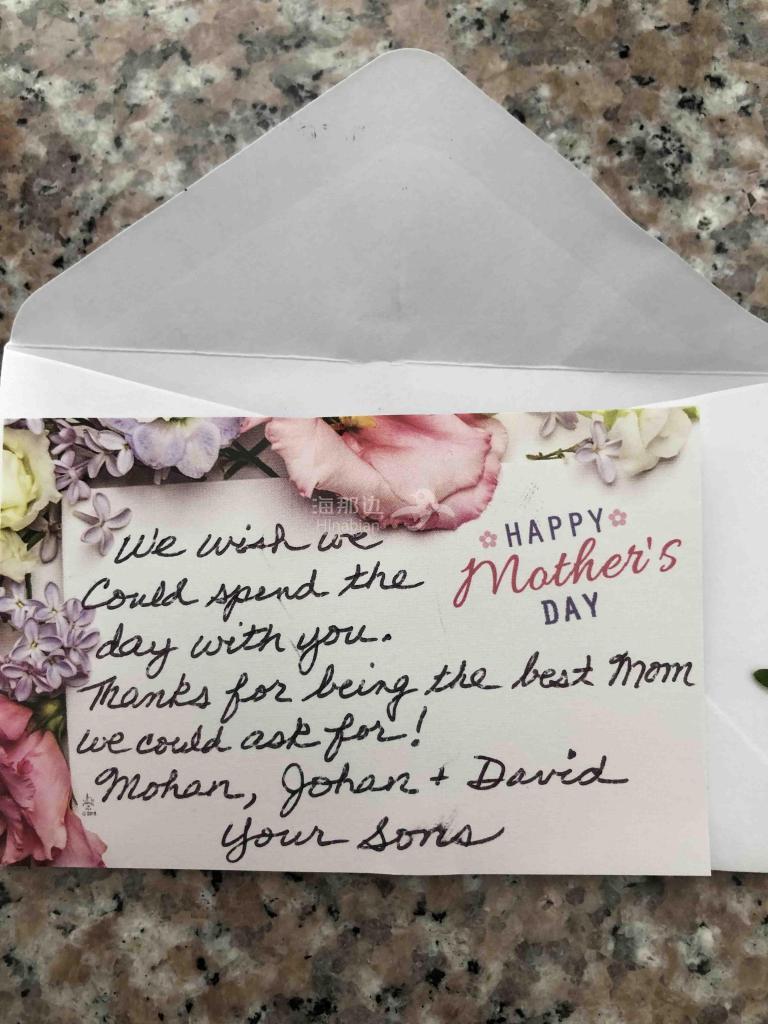 海那边
Hinabian
HAPPY
Mother's
DAY
We wish we
Could spend the
day with you.
Thanks for being the best Mom
we could ask for!
Mohan, Johan + David
your sons